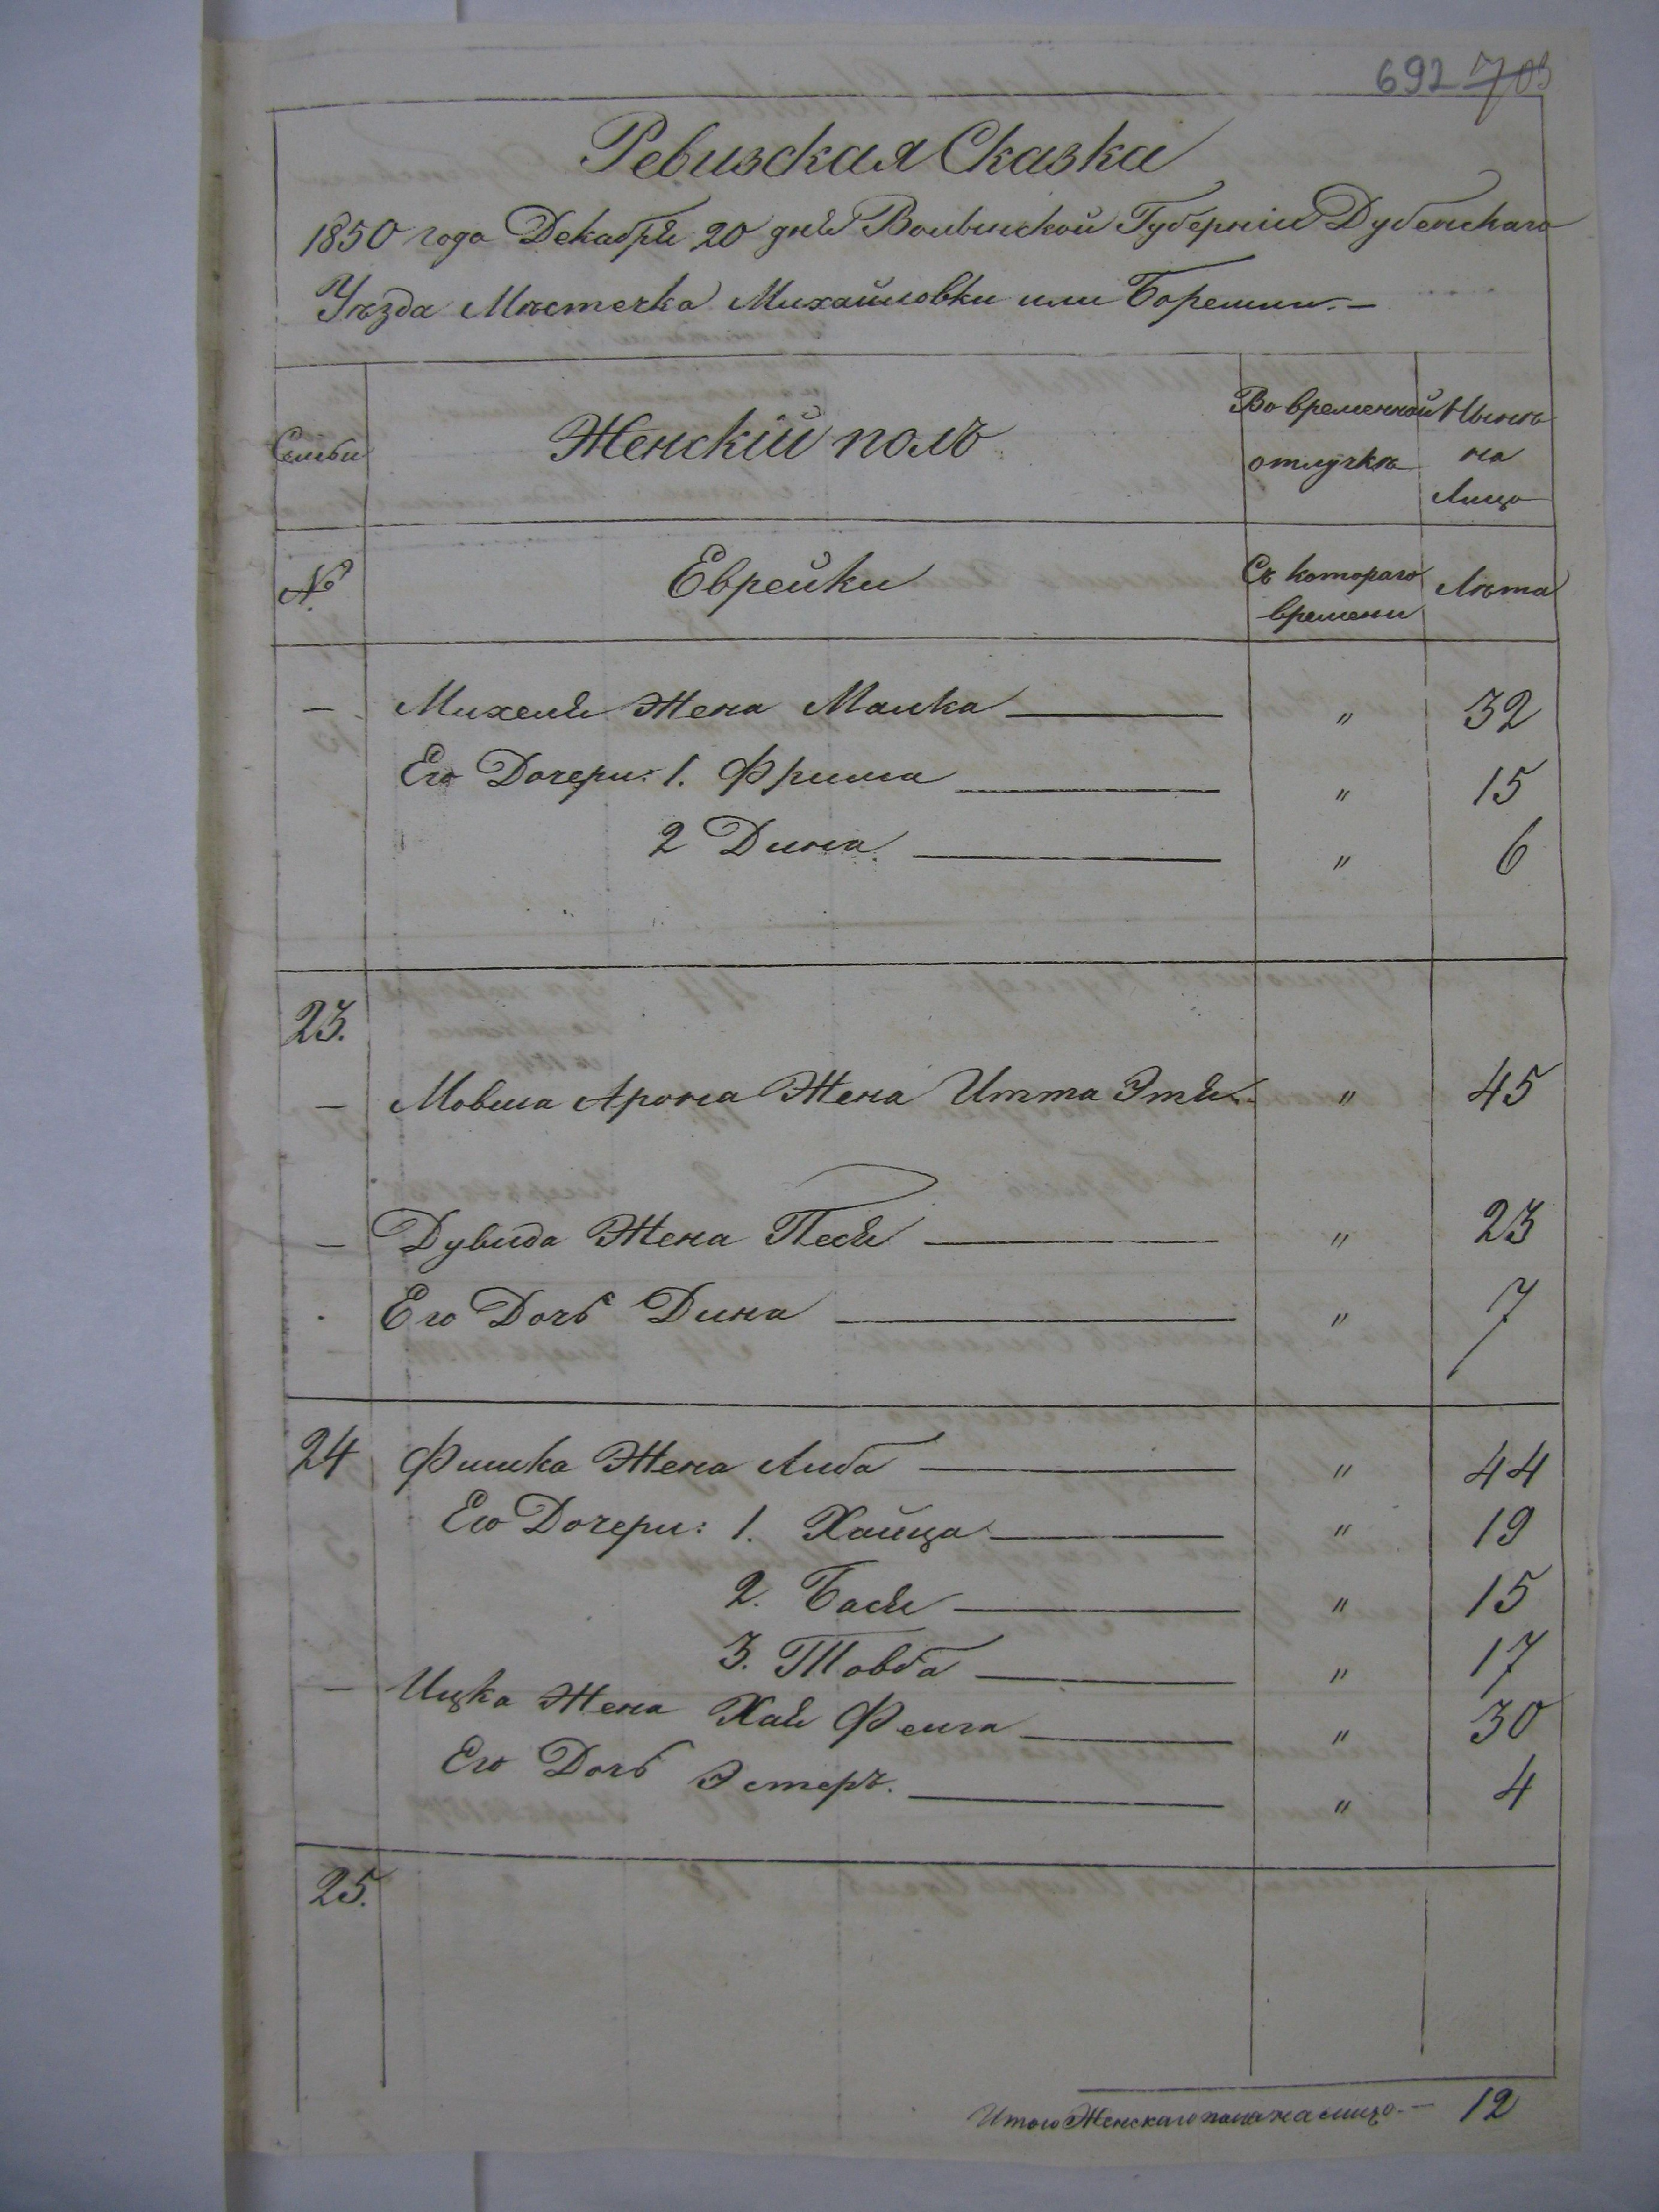 692 703
Ревизская Сказка
1850 года Декабря 20 дня Волынской Губерніи Дубенскаго
Уѣзда Мѣстечка Михайловки или Боремли.—
Семьи
Женскій полъ
Во временной отлучкѣ
Нынѣ на Лицо
№
Еврейки
Съ котораго времени
Лѣта
— Михеля Жена Малка — " 32
Его Дочери: 1. Фрима — " 15
2 Дина. — " 6
23.
— Мовша Арона Жена Итта Этя " 45
— Дувида Жена Песя — " 23
Его Дочь Дина — " 7
24 Фишка Жена Либа — " 44
Его Дочери: 1. Хайца — " 19
2. Бася — " 15
3. Товба — " 17
— Ицка Жена Хая Фейга — " 30
Его Дочь Эстеръ. — " 4
25.
Итого Женскаго пола на лицо.— 12